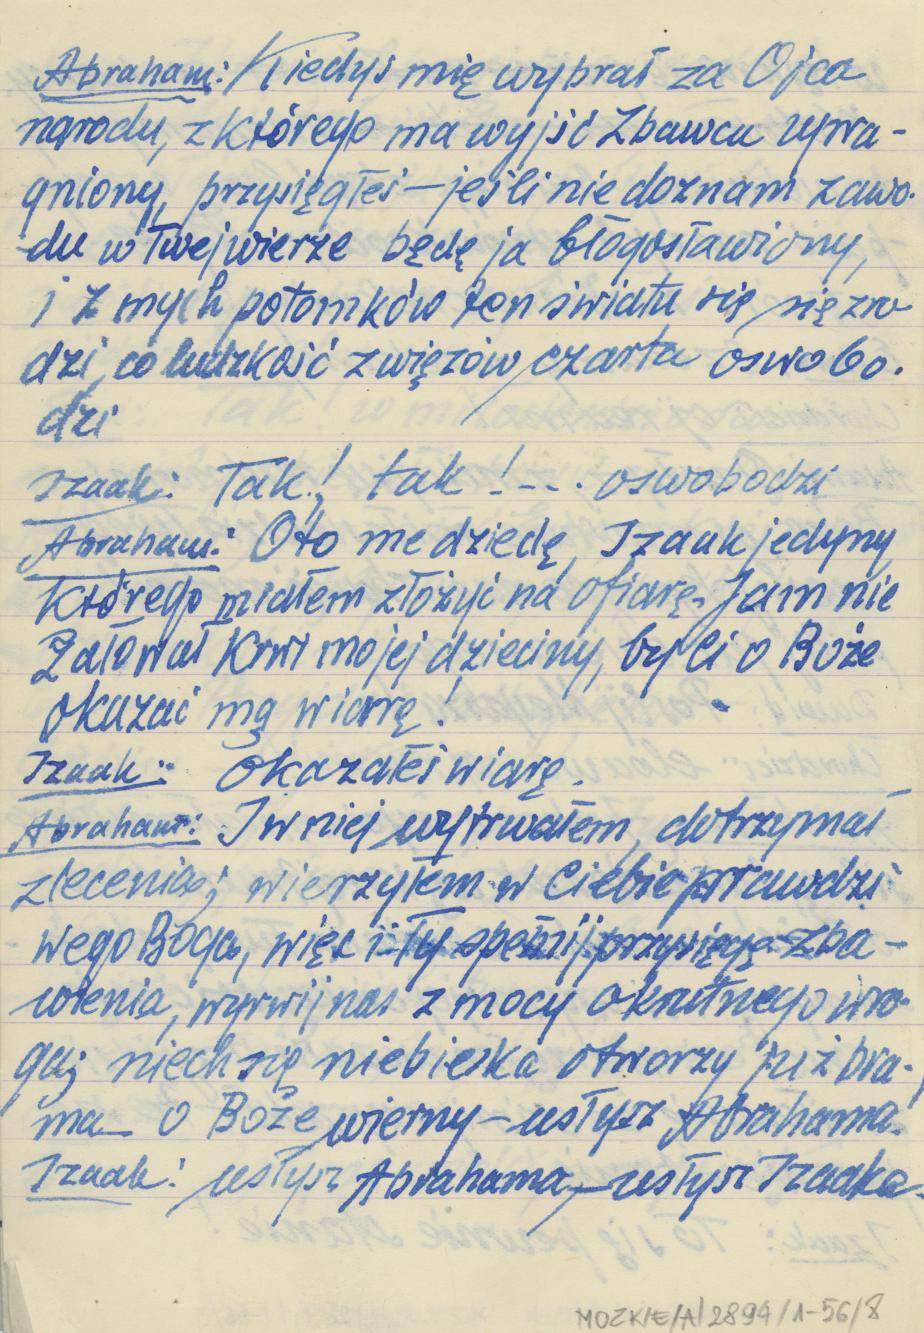 Abraham: Kiedyś mię wybrał za Ojca
narodu, z którego ma wyjść Zbawca upra-
gniony, przysięgłeś – jeśli nie doznam zawo-
du w twej wierze będę ja błogosławiony,
i z mych potomków ten światu się się zro
dzi, co ludzkość z więzów czarta oswobo.
dzi
Izaak: Tak! tak! --- oswobodzi
Abraham: Oto me dziedę, Izaak jedyny
którego miałem złożyć na ofiarę. Jam nie
żałował krwi mojej dzieciny, by Ci o Boże
okazać mą wiarę!
Izaak: Okazałeś wiarę.
Abraham: I w niej wytrwałem, dotrzymał
zlecenia; wierzyłem w Ciebie prawdzi
wego Boga, więc i ty spełnij przysięgę zba-
wienia, wyrwij nas z mocy okrutnego wro-
ga; niech się niebieska otworzy już bra-
ma – o Boże wierny – usłysz Abrahama.
Izaak: usłysz Abrahama, – usłysz Izaaka.
MOZK/E/A/2894/1-56/8